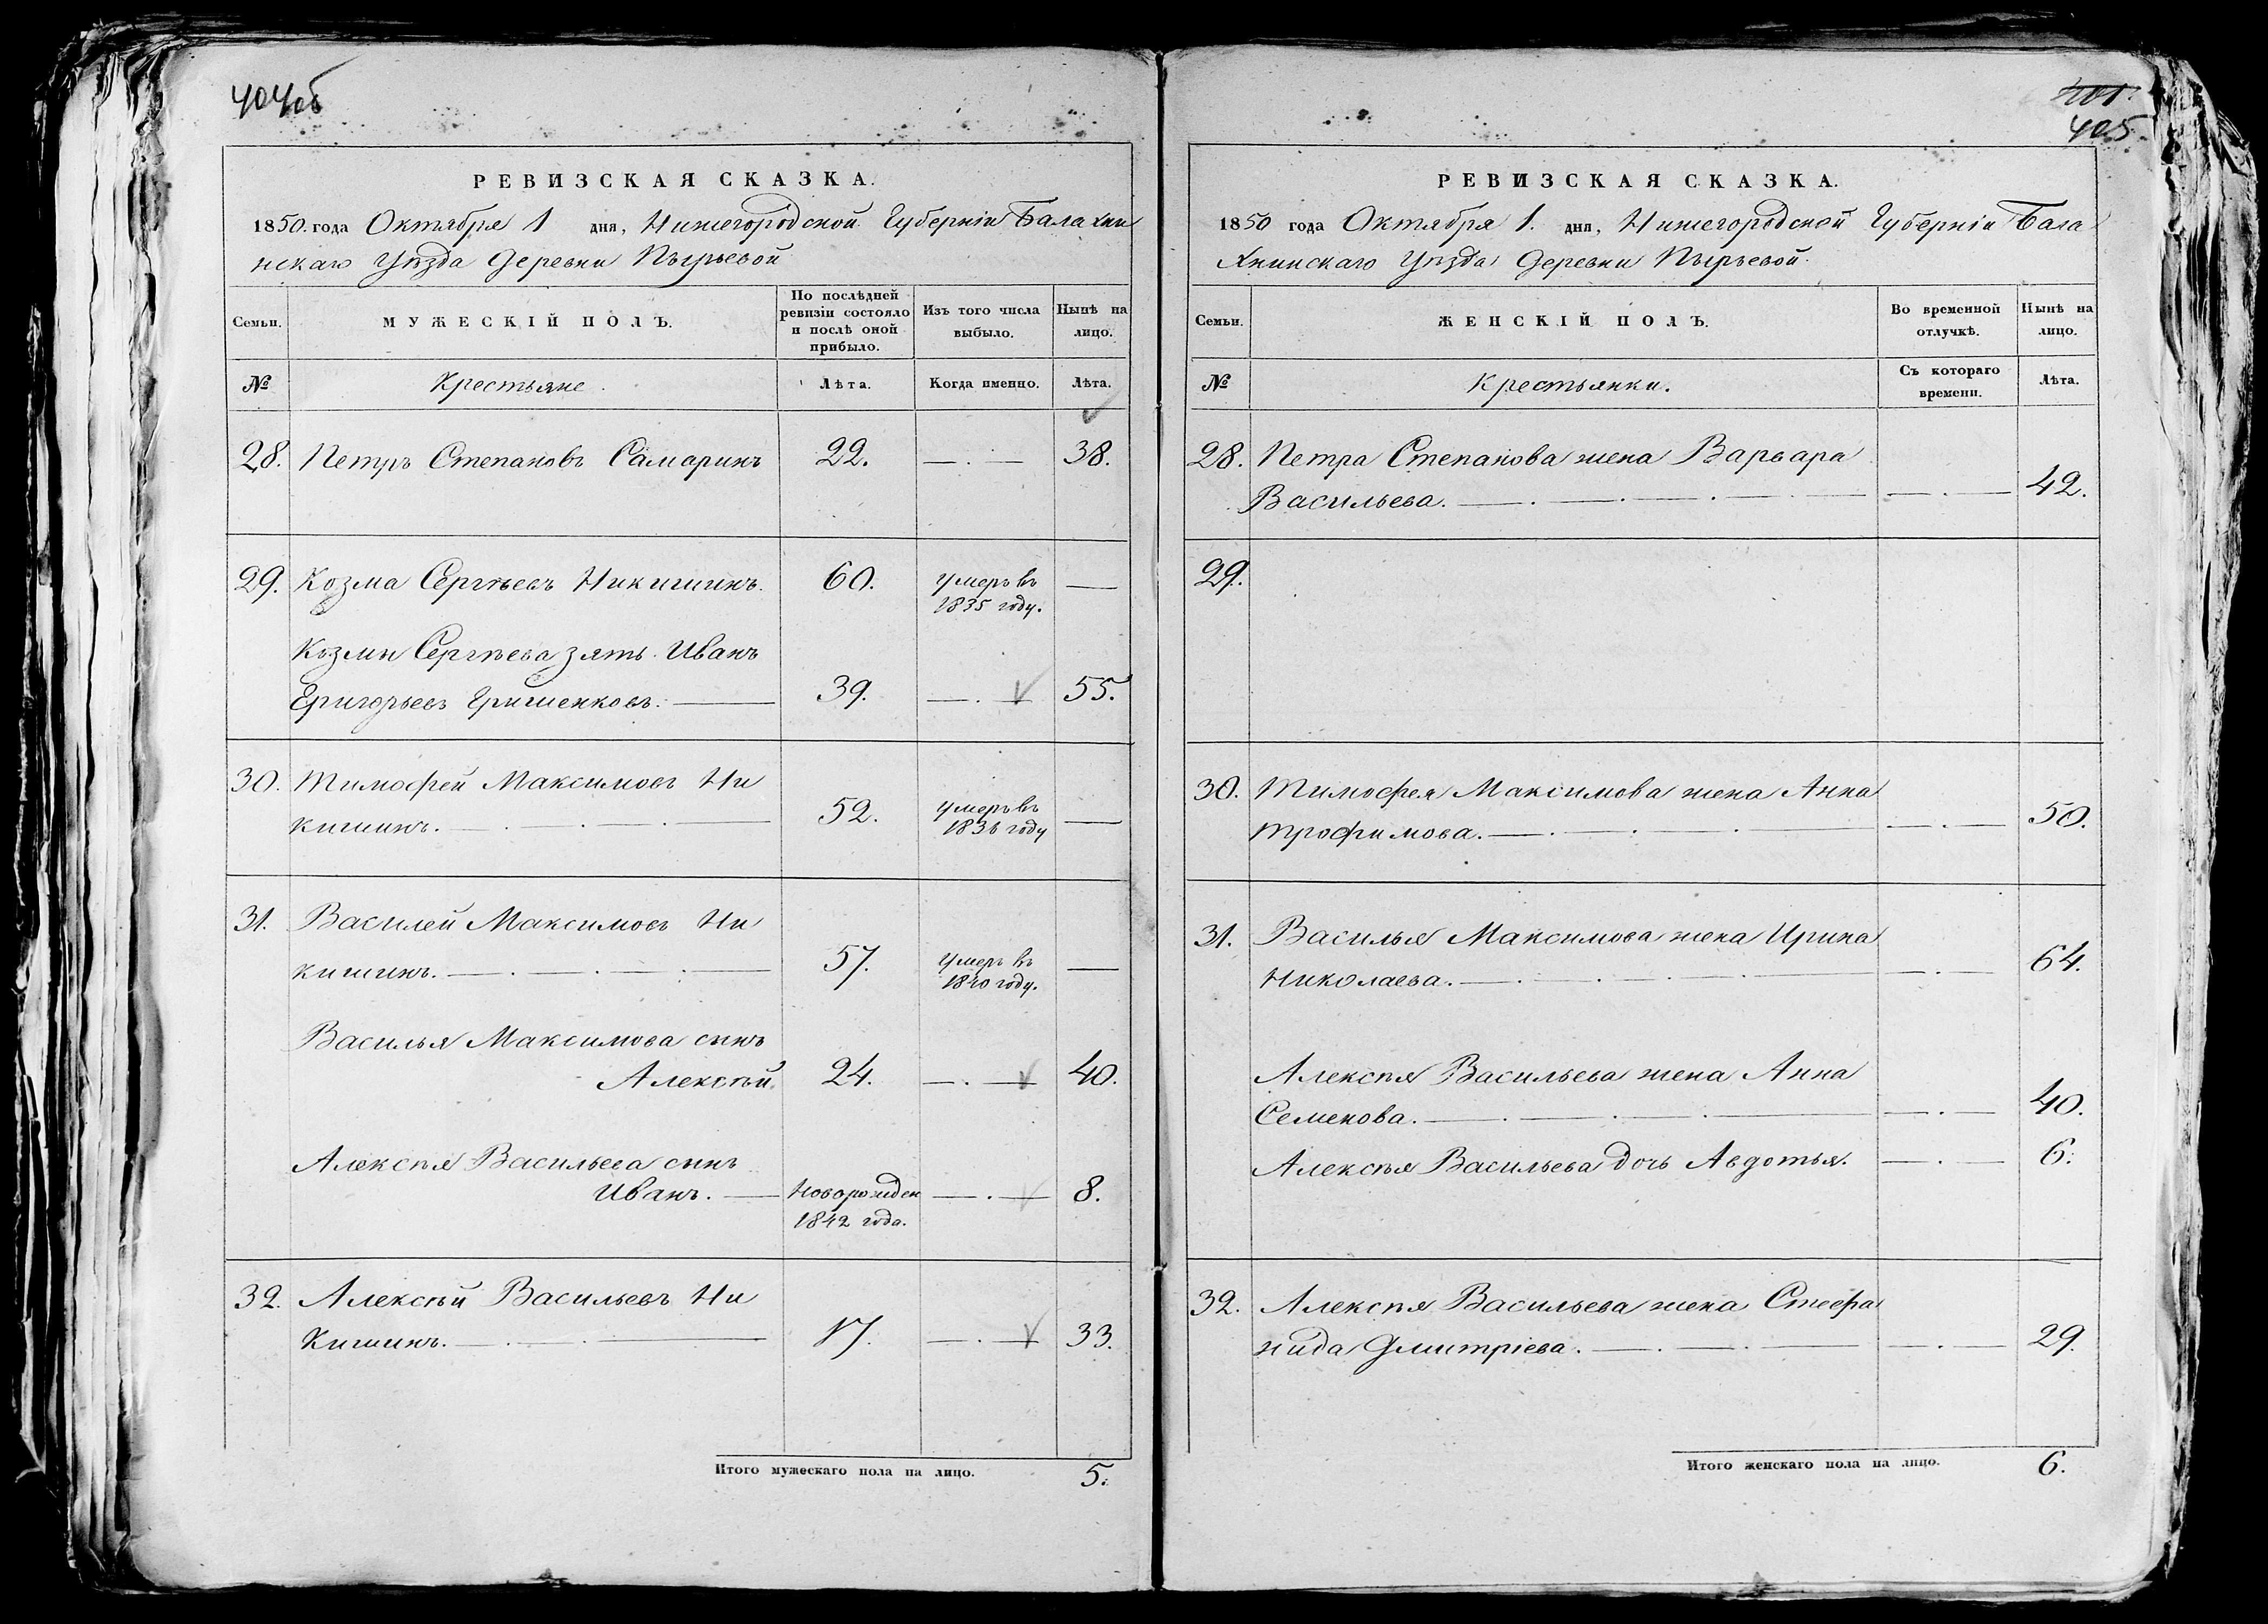 404об
РЕВИЗСКАЯ СКАЗКА.
1850. года Октября 1 дня, Нижегородской Губерніи Балахни
нскаго Уѣзда Деревни Пырьевой
Семьи.
МУЖЕСКІЙ ПОЛЪ.
По послѣдней ревизіи состояло и послѣ оной прибыло.
Изъ того числа выбыло.
Нынѣ на лицо.
№
Крестьяне.
Лѣта.
Когда именно.
Лѣта.
28. Петръ Степановъ Самаринъ 22. —.— 38.
29. Козма Сергѣевъ Никишинъ. 60. умеръ въ —
1835 году.
Козмы Сергѣева зять Иванъ
Григорьевъ Гришенковъ. — 39. —.— 55.
30. Тимофей Максимовъ Ни
кишинъ. — 52. умеръ въ —
1836 году
31. Василей Максимовъ Ни
кишинъ. — 57. умеръ въ —
1840 году.
Василья Максимова сынъ
Алексѣй. 24. —.— 40.
Алексѣя Васильева сынъ
Иванъ. — Новорожден —.— 8.
1842 года.
32. Алексѣй Васильевъ Ни
кишинъ. — 17. —.— 33.
Итого мужескаго пола на лицо. 5.
401.
405.
РЕВИЗСКАЯ СКАЗКА.
1850 года Октября 1. дня, Нижегородской Губерніи Бала
хнинскаго Уѣзда Деревни Пырьевой.
Семьи.
ЖЕНСКІЙ ПОЛЪ.
Во временной отлучкѣ.
Нынѣ на лицо.
№
Крестьянки.
Съ котораго времени.
Лѣта.
28. Петра Степанова жена Варвара
Васильева. — —.— 42.
29.
30. Тимофея Максимова жена Анна
Трофимова. — —.— 50.
31. Василья Максимова жена Ирина
Николаева. — —.— 64.
Алексѣя Васильева жена Анна
Семенова. — —.— 40.
Алексѣя Васильева дочь Авдотья. —.— 6.
32. Алексѣя Васильева жена Стефа
нида Дмитріева. — —.— 29.
Итого женскаго пола на лицо. 6.